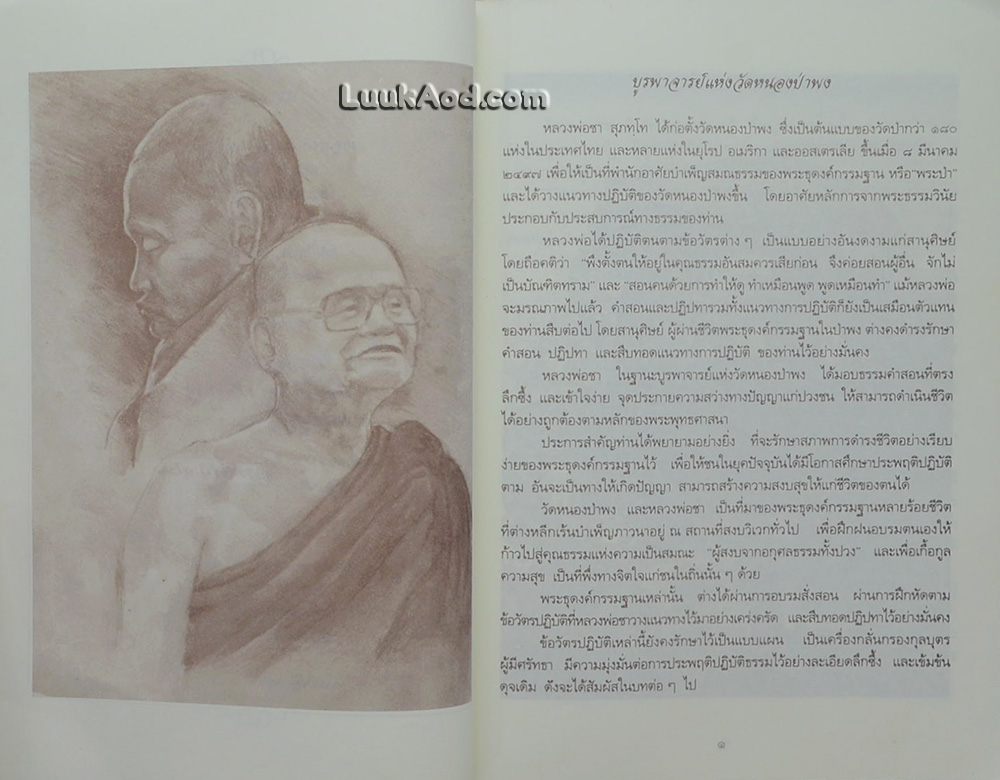 LuukAod.com
บูรพาจารย์แห่งวัดหนองป่าพง
หลวงพ่อชา สุภทฺโท ได้ก่อตั้งวัดหนองป่าพง ซึ่งเป็นต้นแบบของวัดป่ากว่า ๑๘๐
แห่งในประเทศไทย และหลายแห่งในยุโรป อเมริกา และออสเตรเลีย ขึ้นเมื่อ ๘ มีนาคม
๒๔๙๗ เพื่อให้เป็นที่พำนักอาศัยบำเพ็ญสมณธรรมของพระธุดงค์กรรมฐาน หรือ"พระป่า"
และได้วางแนวทางปฏิบัติของวัดหนองป่าพงขึ้น โดยอาศัยหลักการจากพระธรรมวินัย
ประกอบกับประสบการณ์ทางธรรมของท่าน
หลวงพ่อได้ปฏิบัติตนตามข้อวัตรต่าง ๆ เป็นแบบอย่างอันงดงามแก่สานุศิษย์
โดยถือคติว่า "พึงตั้งตนให้อยู่ในคุณธรรมอันสมควรเสียก่อน จึงค่อยสอนผู้อื่น จักไม่
เป็นบัณฑิตทราม" และ "สอนคนด้วยการทำให้ดู ทำเหมือนพูด พูดเหมือนทำ" แม้หลวงพ่อ
จะมรณภาพไปแล้ว คำสอนและปฏิปทารวมทั้งแนวทางการปฏิบัติก็ยังเป็นเสมือนตัวแทน
ของท่านสืบต่อไป โดยสานุศิษย์ ผู้ผ่านชีวิตพระธุดงค์กรรมฐานในป่าพง ต่างคงดำรงรักษา
คำสอน ปฏิปทา และสืบทอดแนวทางการปฏิบัติ ของท่านไว้อย่างมั่นคง
หลวงพ่อชา ในฐานะบูรพาจารย์แห่งวัดหนองป่าพง ได้มอบธรรมคำสอนที่ตรง
ลึกซึ้ง และเข้าใจง่าย จุดประกายความสว่างทางปัญญาแก่ปวงชน ให้สามารถดำเนินชีวิต
ได้อย่างถูกต้องตามหลักของพระพุทธศาสนา
ประการสำคัญท่านได้พยายามอย่างยิ่ง ที่จะรักษาสภาพการดำรงชีวิตอย่างเรียบ
ง่ายของพระธุดงค์กรรมฐานไว้ เพื่อให้ชนในยุคปัจจุบันได้มีโอกาสศึกษาประพฤติปฏิบัติ
ตาม อันจะเป็นทางให้เกิดปัญญา สามารถสร้างความสงบสุขให้แก่ชีวิตของตนได้
วัดหนองป่าพง และหลวงพ่อชา เป็นที่มาของพระธุดงค์กรรมฐานหลายร้อยชีวิต
ที่ต่างหลีกเร้นบำเพ็ญภาวนาอยู่ ณ สถานที่สงบวิเวกทั่วไป เพื่อฝึกฝนอบรมตนเองให้
ก้าวไปสู่คุณธรรมแห่งความเป็นสมณะ "ผู้สงบจากอกุศลธรรมทั้งปวง" และเพื่อเกื้อกูล
ความสุข เป็นที่พึ่งทางจิตใจแก่ชนในถิ่นนั้น ๆ ด้วย
พระธุดงค์กรรมฐานเหล่านั้น ต่างได้ผ่านการอบรมสั่งสอน ผ่านการฝึกหัดตาม
ข้อวัตรปฏิบัติที่หลวงพ่อชาวางแนวทางไว้มาอย่างเคร่งครัด และสืบทอดปฏิปทาไว้อย่างมั่นคง
ข้อวัตรปฏิบัติเหล่านี้ยังคงรักษาไว้เป็นแบบแผน เป็นเครื่องกลั่นกรองกุลบุตร
ผู้มีศรัทธา มีความมุ่งมั่นต่อการประพฤติปฏิบัติธรรมไว้อย่างละเอียดลึกซึ้ง และเข้มข้น
ดุจเดิม ดังจะได้สัมผัสในบทต่อ ๆ ไป
๑